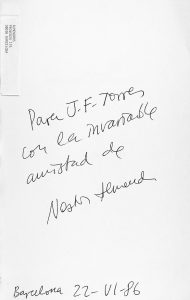 Para J.F. Torres
con la invariable
amistad de
Nestor Almend
Barcelona 22-VI-86